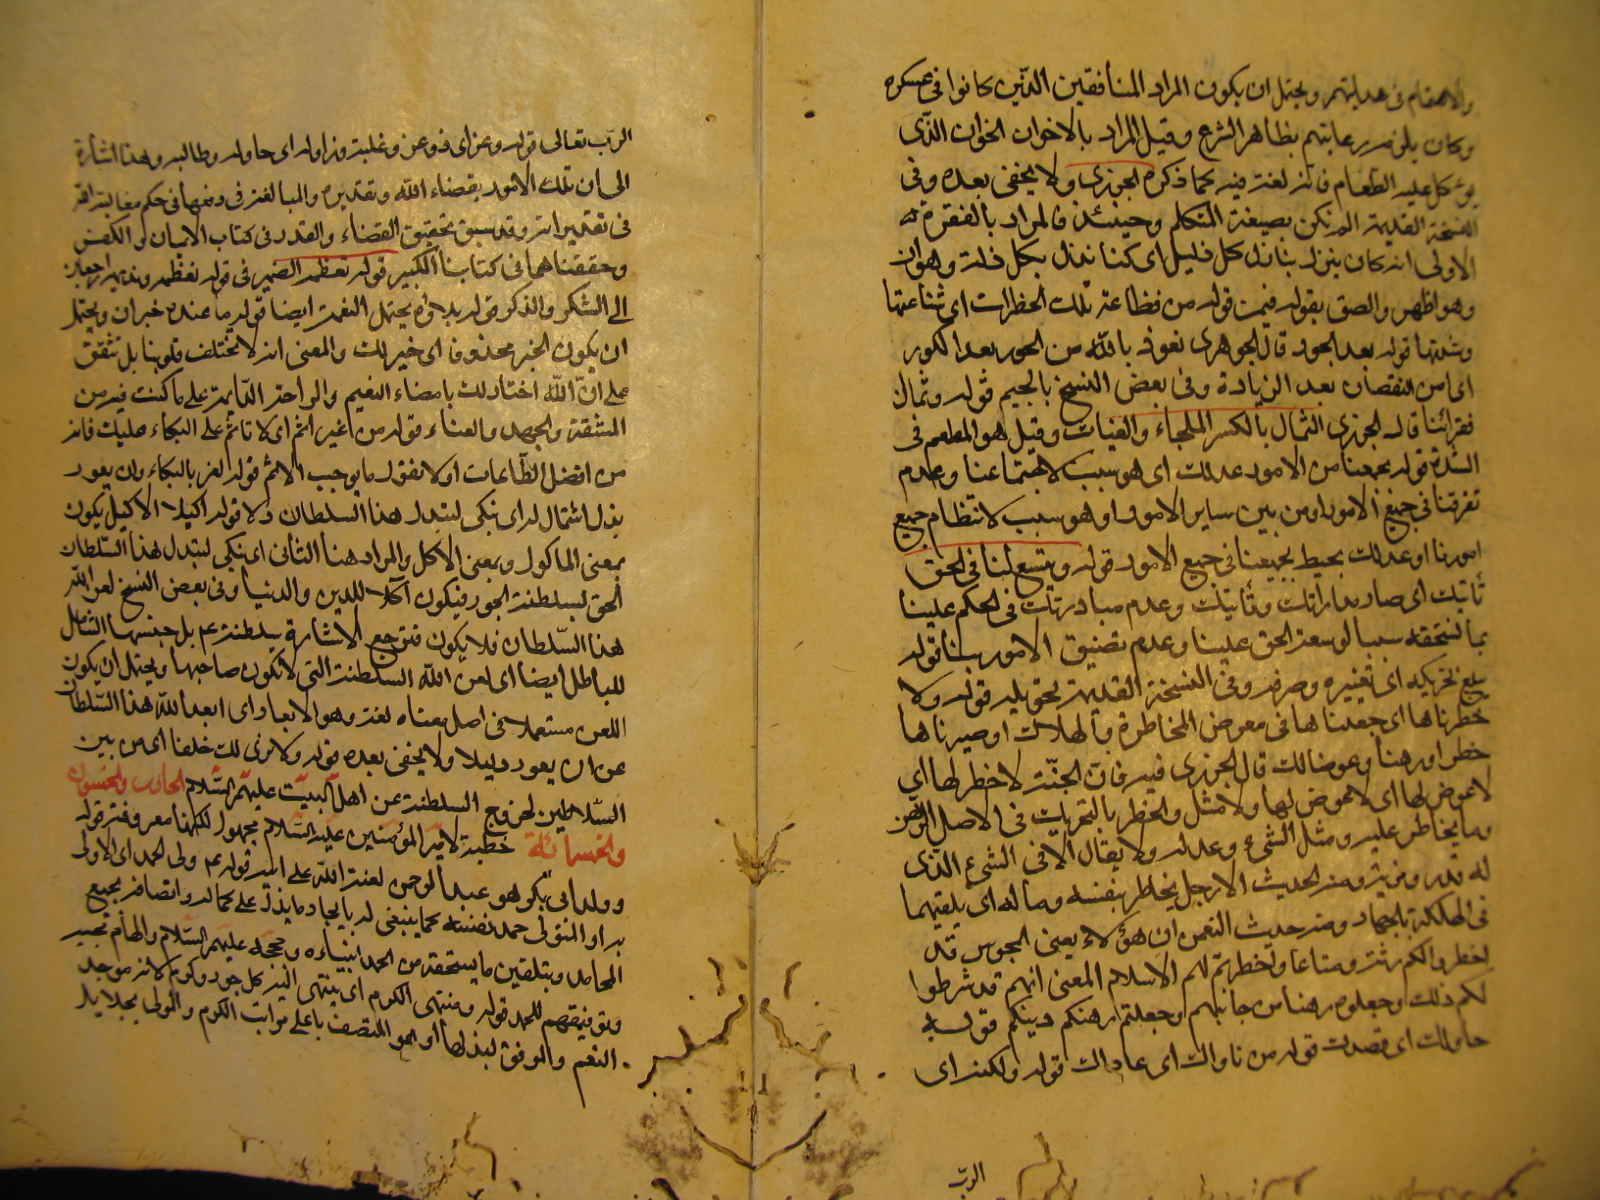 والاهتمام في هدايتهم ويحتمل ان يكون المراد المنافقين الذين كانوا في عسكره
وكان يلزمه رعايتهم بظاهر الشرع وقيل المراد بالاخوان الخوان الذي
يؤكل عليه الطعام فانه لغة فيه كما ذكره الجزري ولا يخفى بعده وفي
النسخة القديمة المر نكن بصيغة المتكلم وحينئذ فالمراد بالفقرة
الاولى انه كان ينزل بنا ذل كل ذليل اي كنا نذل بكل ذلة وهوان
وهو اظهر والصق بقوله فمن قوله من فظاعة تلك الخطرات اي شناعتها
وشدتها قوله بعد الحور قال الجوهري نعوذ بالله من الحور بعد الكور
اي من النقصان بعد الزيادة وفي بعض النسخ بالجيم قوله وثمال
فقرائنا قال الجزري الثمال بالكسر الملجاء والغياث وقيل هو المطعم في
الشدة قوله يجمعنا من الامور عدلك اي هو سبب لاجتماعنا وعدم
تفرقنا في جميع الامور او من بين ساير الامور او هو سبب لانتظام جميع
امورنا او عدلك يحيط بجميعنا في جميع الامور قوله ويتسع لنا في الحق
تأنيك اي صار مداراتك وتأنيك وعدم مبادرتك في الحكم علينا
بما نستحقه سببا لوسعة الحق علينا وعدم تضييق الامور بنا قوله
يبلغ تحريكه اي تغييره وصرفه وفي النسخة القديمة تحويله قوله ولا
خطرناها اي جعلناها في معرض المخاطرة والهلاك او صيرناها
خطرا ورهنا وعوضا لك قال الجزري فيه فان الجنة لا خطر لها اي
لا عوض لها اي لا عوض لها ولا مثل والخطر بالتحريك في الاصل الرهن
وما يخاطر عليه ومثل الشيء وعدله ولا يقال الا في الشيء الذي
له قدر ومزية ومنه الحديث الا رجل يخاطر بنفسه وماله اي يلقيهما
في الهلكة بالجهاد ومنه حديث النعمن ان هؤلاء يعني المجوس قد
اخطروا لكم رثة ومتاعا واخطرتم لهم الاسلام المعنى انهم قد شرطوا
لكم ذلك وجعلوه رهنا من جانبهم وجعلتم رهنكم دينكم قوله
حاولك اي قصدك قوله من ناواك اي عاداك قوله ولكنه اي
الرب
الرب تعالى قوله وعز اي ذو عز وغلبة وزاوله اي حاوله وطالبه وهذا اشارة
الى ان تلك الامور بقضاء الله وتقديره والمبالغة في دفعها في حكم مغالبة الله
في تقديراته وقد سبق تحقيق القضاء والقدر في كتاب الايمان والكفر
وحققناهما في كتابنا الكبير قوله نعظمه الضمير في قوله نعظمه ونديمه راجعان
الى الشكر والذكر قوله بلاؤه يحتمل النعمة ايضا قوله ما عنده خبر ان ويحتمل
ان يكون الخبر محذوفا اي خير لك والمعنى انه لا تختلف قلوبنا بل تتفق
على ان الله اختار لك بامضاء النعيم والراحة الدائمة على ما كنت فيه من
المشقة والجهد والعناء قوله من غير اثم اي لا تأثم على البكاء عليك فانه
من افضل الطاعات او لا نقول ما يوجب الاثم قوله لعز بالبكاء وان يعود
بدل اشتمال له اي نبكي لتبدل هذا السلطان ذلا قوله اكيلا الاكيل يكون
بمعنى الماكول وبمعنى الاكل والمراد هنا الثاني اي نبكي لتبدل هذا السلطان
الحق بسلطنة الجور فيكون آكلا للدين والدنيا وفي بعض النسخ لعن الله
هذا السلطان فلا يكون مرجع الاشارة سلطنته عم بل جنسها الشامل
للباطل ايضا اي لعن الله السلطنة التي لا تكون صاحبها ويحتمل ان يكون
اللعن مستعملا في اصل معناه لغة وهو الابعاد اي ابعد الله هذا السلطان
عن ان يعود ذليلا ولا يخفى بعده قوله ولا نرى لك خلفا اي من بين
السلاطين لخروج السلطنة عن اهل البيت عليهم السلام الحادي والخمسون
والخمسمائة خطبة لامير المؤمنين عليه السلام مجهول لكنها معروفة قوله
وولد ابي بكر هو عبد الرحمن لعنة الله على ابيه قوله عم ولي الحمد اي الاولى
به او المتولى حمد نفسه كما ينبغي له بايجاد ما يدل على كماله واتصافه بجميع
المحامد وبتلقين ما يستحقه من الحمد انبياءه وحججه عليهم السلام والهام محبيه
وتوفيقهم للحمد قوله ومنتهى الكرم اي ينتهى اليه كل جود وكرم لانه موجد
النعم والموفق لبذلها او هو المتصف باعلى مراتب الكرم والمولى بجلايل